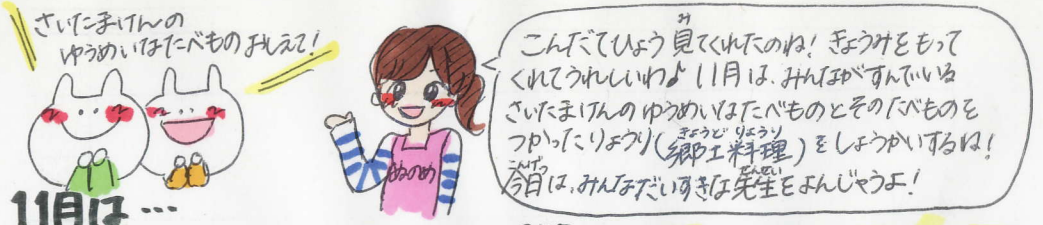 さいたまけんの
ゆうめいなたべものおしえて!
こんだてひょう見てくれたのね! きょうみをもって
くれてうれしいわ♪ 11月は、みんながすんでいる
さいたまけんのゆうめいなたべものとそのたべものを
つかったりょうり(郷土料理)をしょうかいするね!
今月は、みんなだいすきな先生をよんじゃうよ!
11月は…